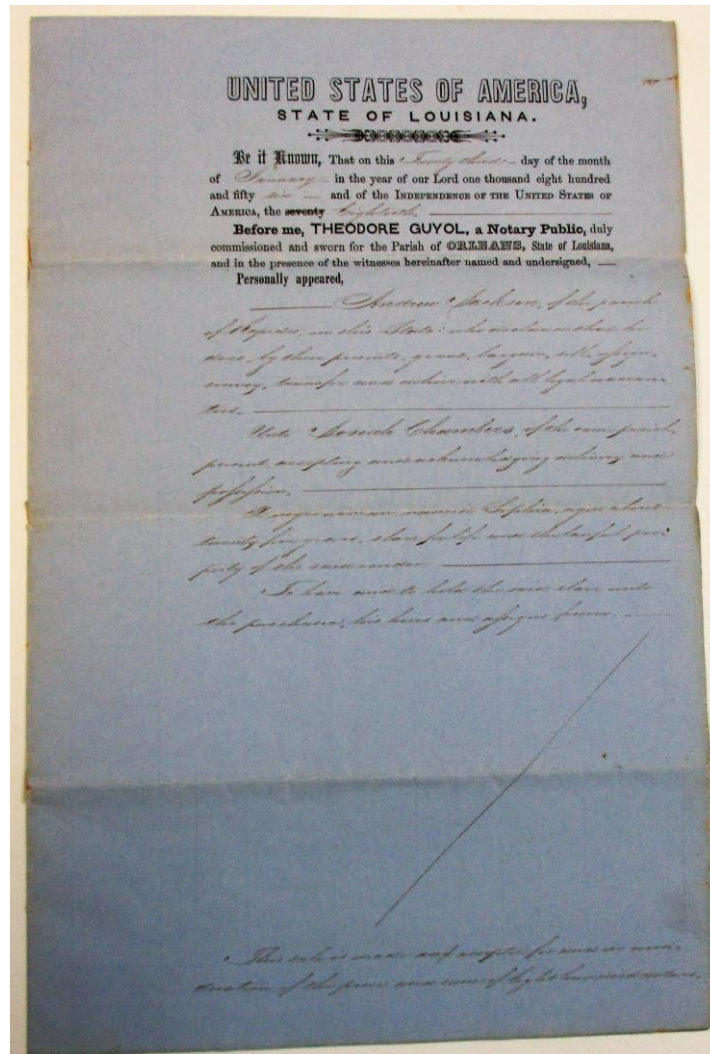 UNITED STATES OF AMERICA,
STATE OF LOUISIANA.
Be it Known, That on this Twenty third day of the month
of January in the year of our Lord one thousand eight hundred
and fifty six and of the INDEPENDENCE OF THE UNITED STATES OF
AMERICA, the seventy Eightieth.
Before me, THEODORE GUYOL, a Notary Public, duly
commissioned and sworn for the Parish of ORLEANS, State of Louisiana,
and in the presence of the witnesses hereinafter named and undersigned,
Personally appeared,
Andrew Jackson, of the parish
of Rapides, in this State: who declares that he
does, by these presents, grant, bargain, sell, assign,
convey, transfer and deliver with all legal warran-
ties.
Unto Josiah Chambers, of the same parish,
present, accepting and acknowledging delivery and
possession.
A negro woman, named Sophia, aged about
twenty years, slave for life and the lawful pro-
perty of the said vendor
To have and to hold the said slave unto
the purchaser, his heirs and assigns forever.
This sale is made and accepted for and in consi-
deration of the price and sum of Eight hundred dollars,